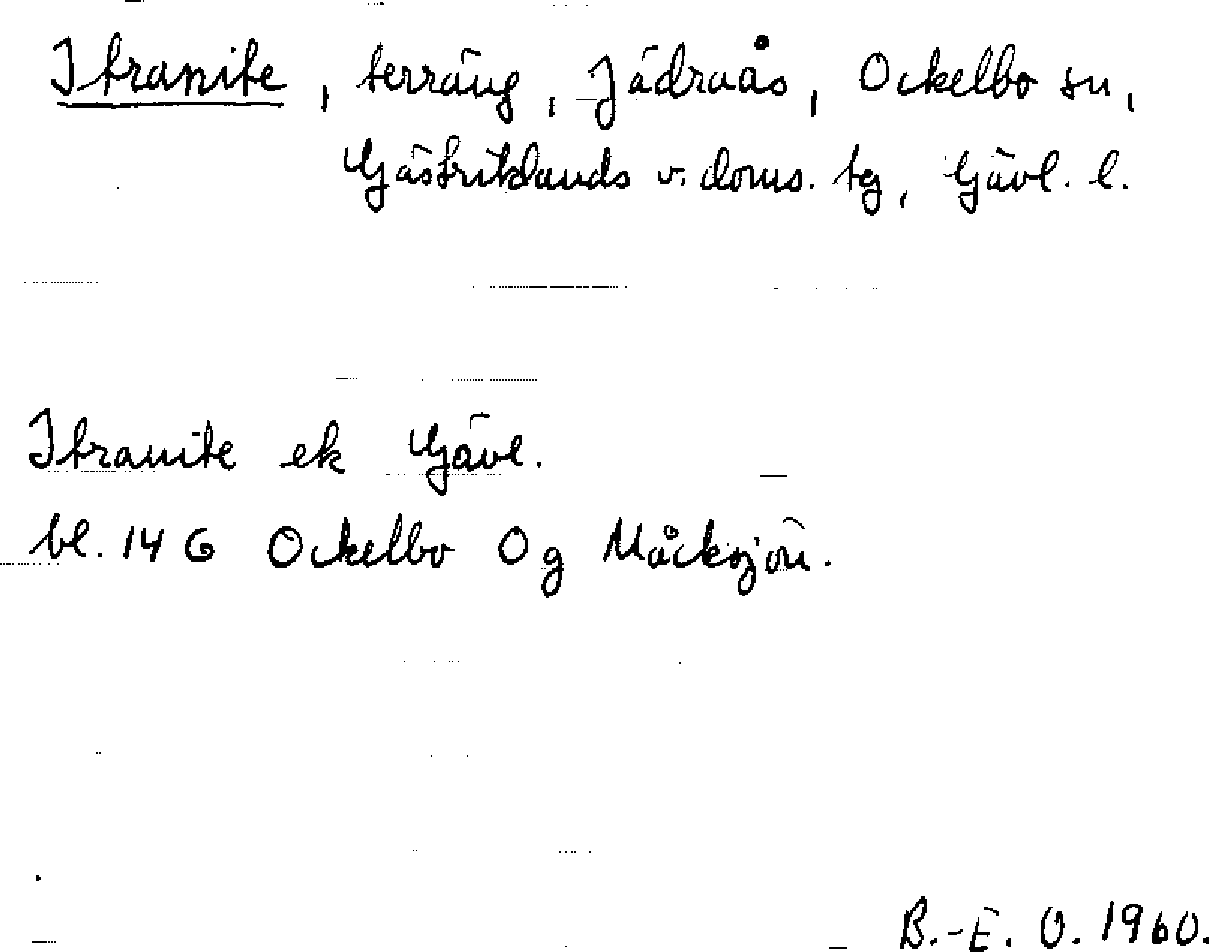 Itranite, terräng, Jädraås, Ockelbo sn,
Gästriklands v. doms. tg, Gävl. l.
Itranite ek Gävl.
bl. 14 G Ockelbo 0 g Måcksjön.
B.-E. O. 1960.